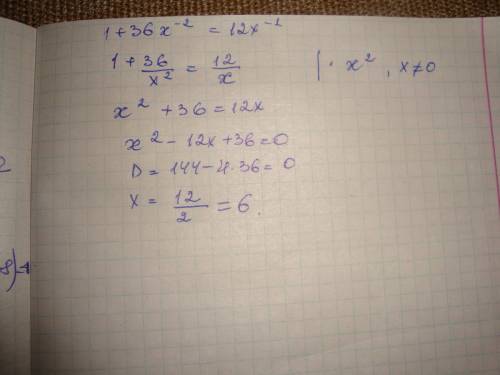 1 + 36x⁻² = 12x⁻¹
1 + 36/x² = 12/x | · x², x≠0
x² + 36 = 12x
x² - 12x + 36 = 0
D = 144 - 4·36 = 0
x = 12/2 = 6.
8)